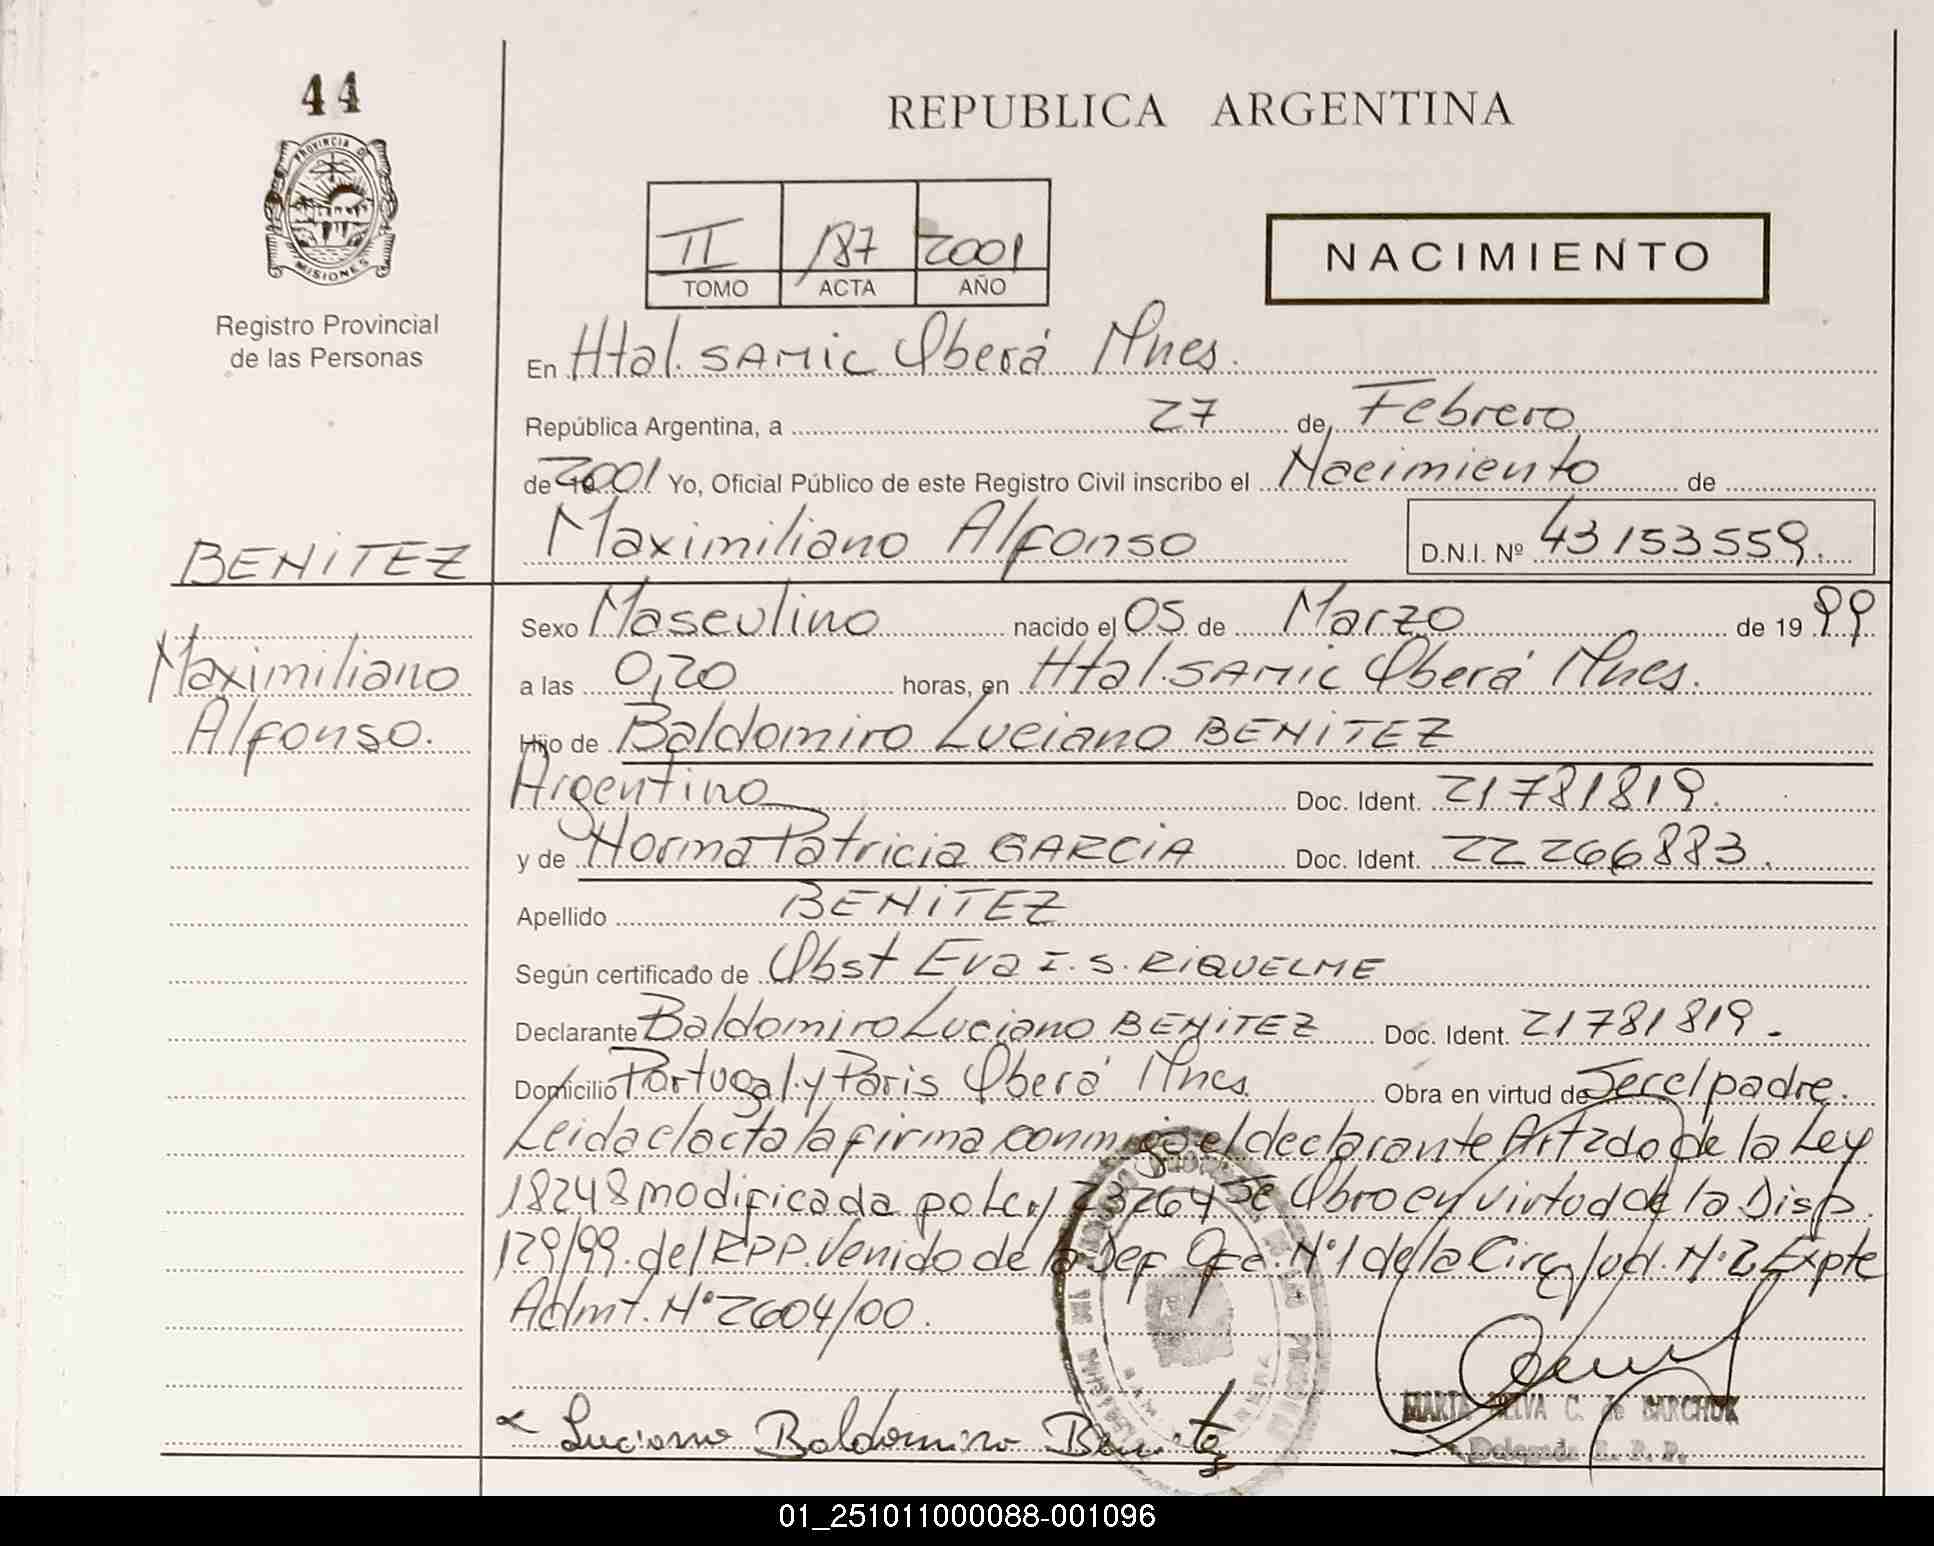 44
REPUBLICA ARGENTINA
PROVINCIA DE
MISIONES
Registro Provincial
de las Personas
II 187 2001
TOMO ACTA AÑO
NACIMIENTO
En Htal. SAMIC Oberá Mnes.
República Argentina, a 27 de Febrero
de 2001 Yo, Oficial Público de este Registro Civil inscribo el Nacimiento de
Maximiliano Alfonso D.N.I. Nº 43153559.
BENITEZ
Maximiliano
Alfonso.
Sexo Masculino nacido el 05 de Marzo de 1999
a las 0,20 horas, en Htal. SAMIC Oberá Mnes.
Hijo de Baldomiro Luciano BENITEZ
Argentino Doc. Ident. 21781819.
y de Norma Patricia GARCIA Doc. Ident. 22266883.
Apellido BENITEZ
Según certificado de Obst Eva I. S. RIQUELME
Declarante Baldomiro Luciano BENITEZ Doc. Ident. 21781819.
Domicilio Portugal y Paris Oberá Mnes. Obra en virtud de Ser el padre.
Leida el acta la firma conmigo el declarante Art 2do de la Ley
18248 modificada po Ley 23264 Se Obro en virtud de la Disp.
129/99. del RPP. Venido de la Def Ofc. Nº1 de la Circ Jud. Nº2 Expte
Admt. Nº 2604/00.
Luciano Baldomiro Benitez
MARTA C. de SARCHUK
Delegada R. P. P.
01_251011000088-001096